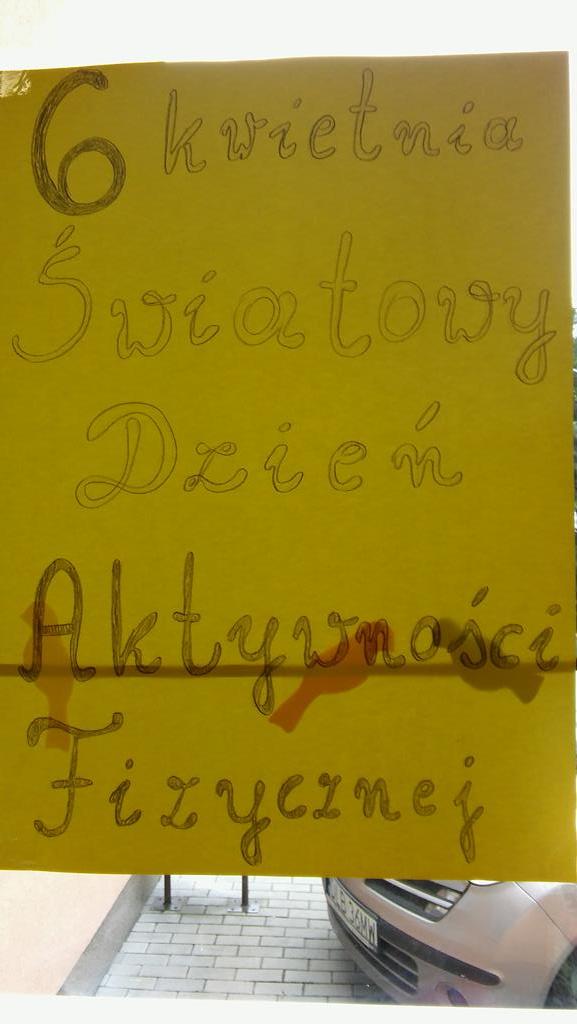 6 kwietnia
Światowy
Dzień
Aktywności
Fizycznej